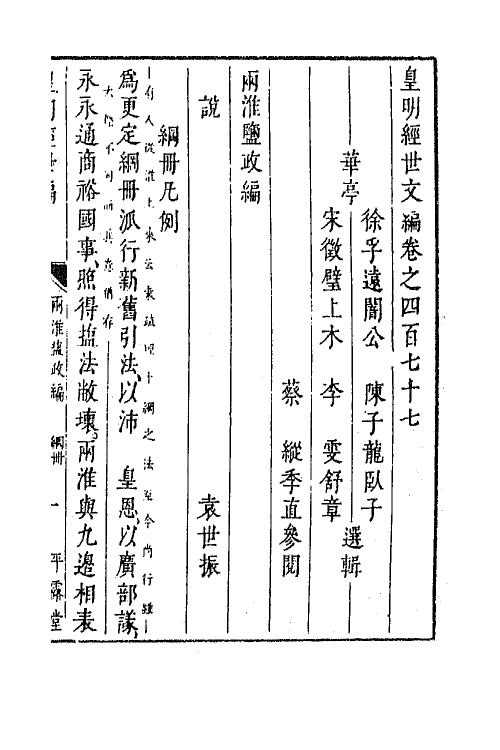 皇明經世文編卷之四百七十七
徐孚遠闇公 陳子龍臥子
華亭 選輯
宋徵璧上木 李 雯舒章
蔡 縱季直參閱
兩淮鹽政編
說 袁世振
綱冊凡例
有人從淮上來云袁疏理十綱之法至今尚行雖
爲更定綱冊派行新舊引法以沛 皇恩以廣部議
大略不同而其意猶存
永永通商裕國事照得塩法敝壞兩淮與九邊相表
兩淮塩政編 綱冊 一 平露堂